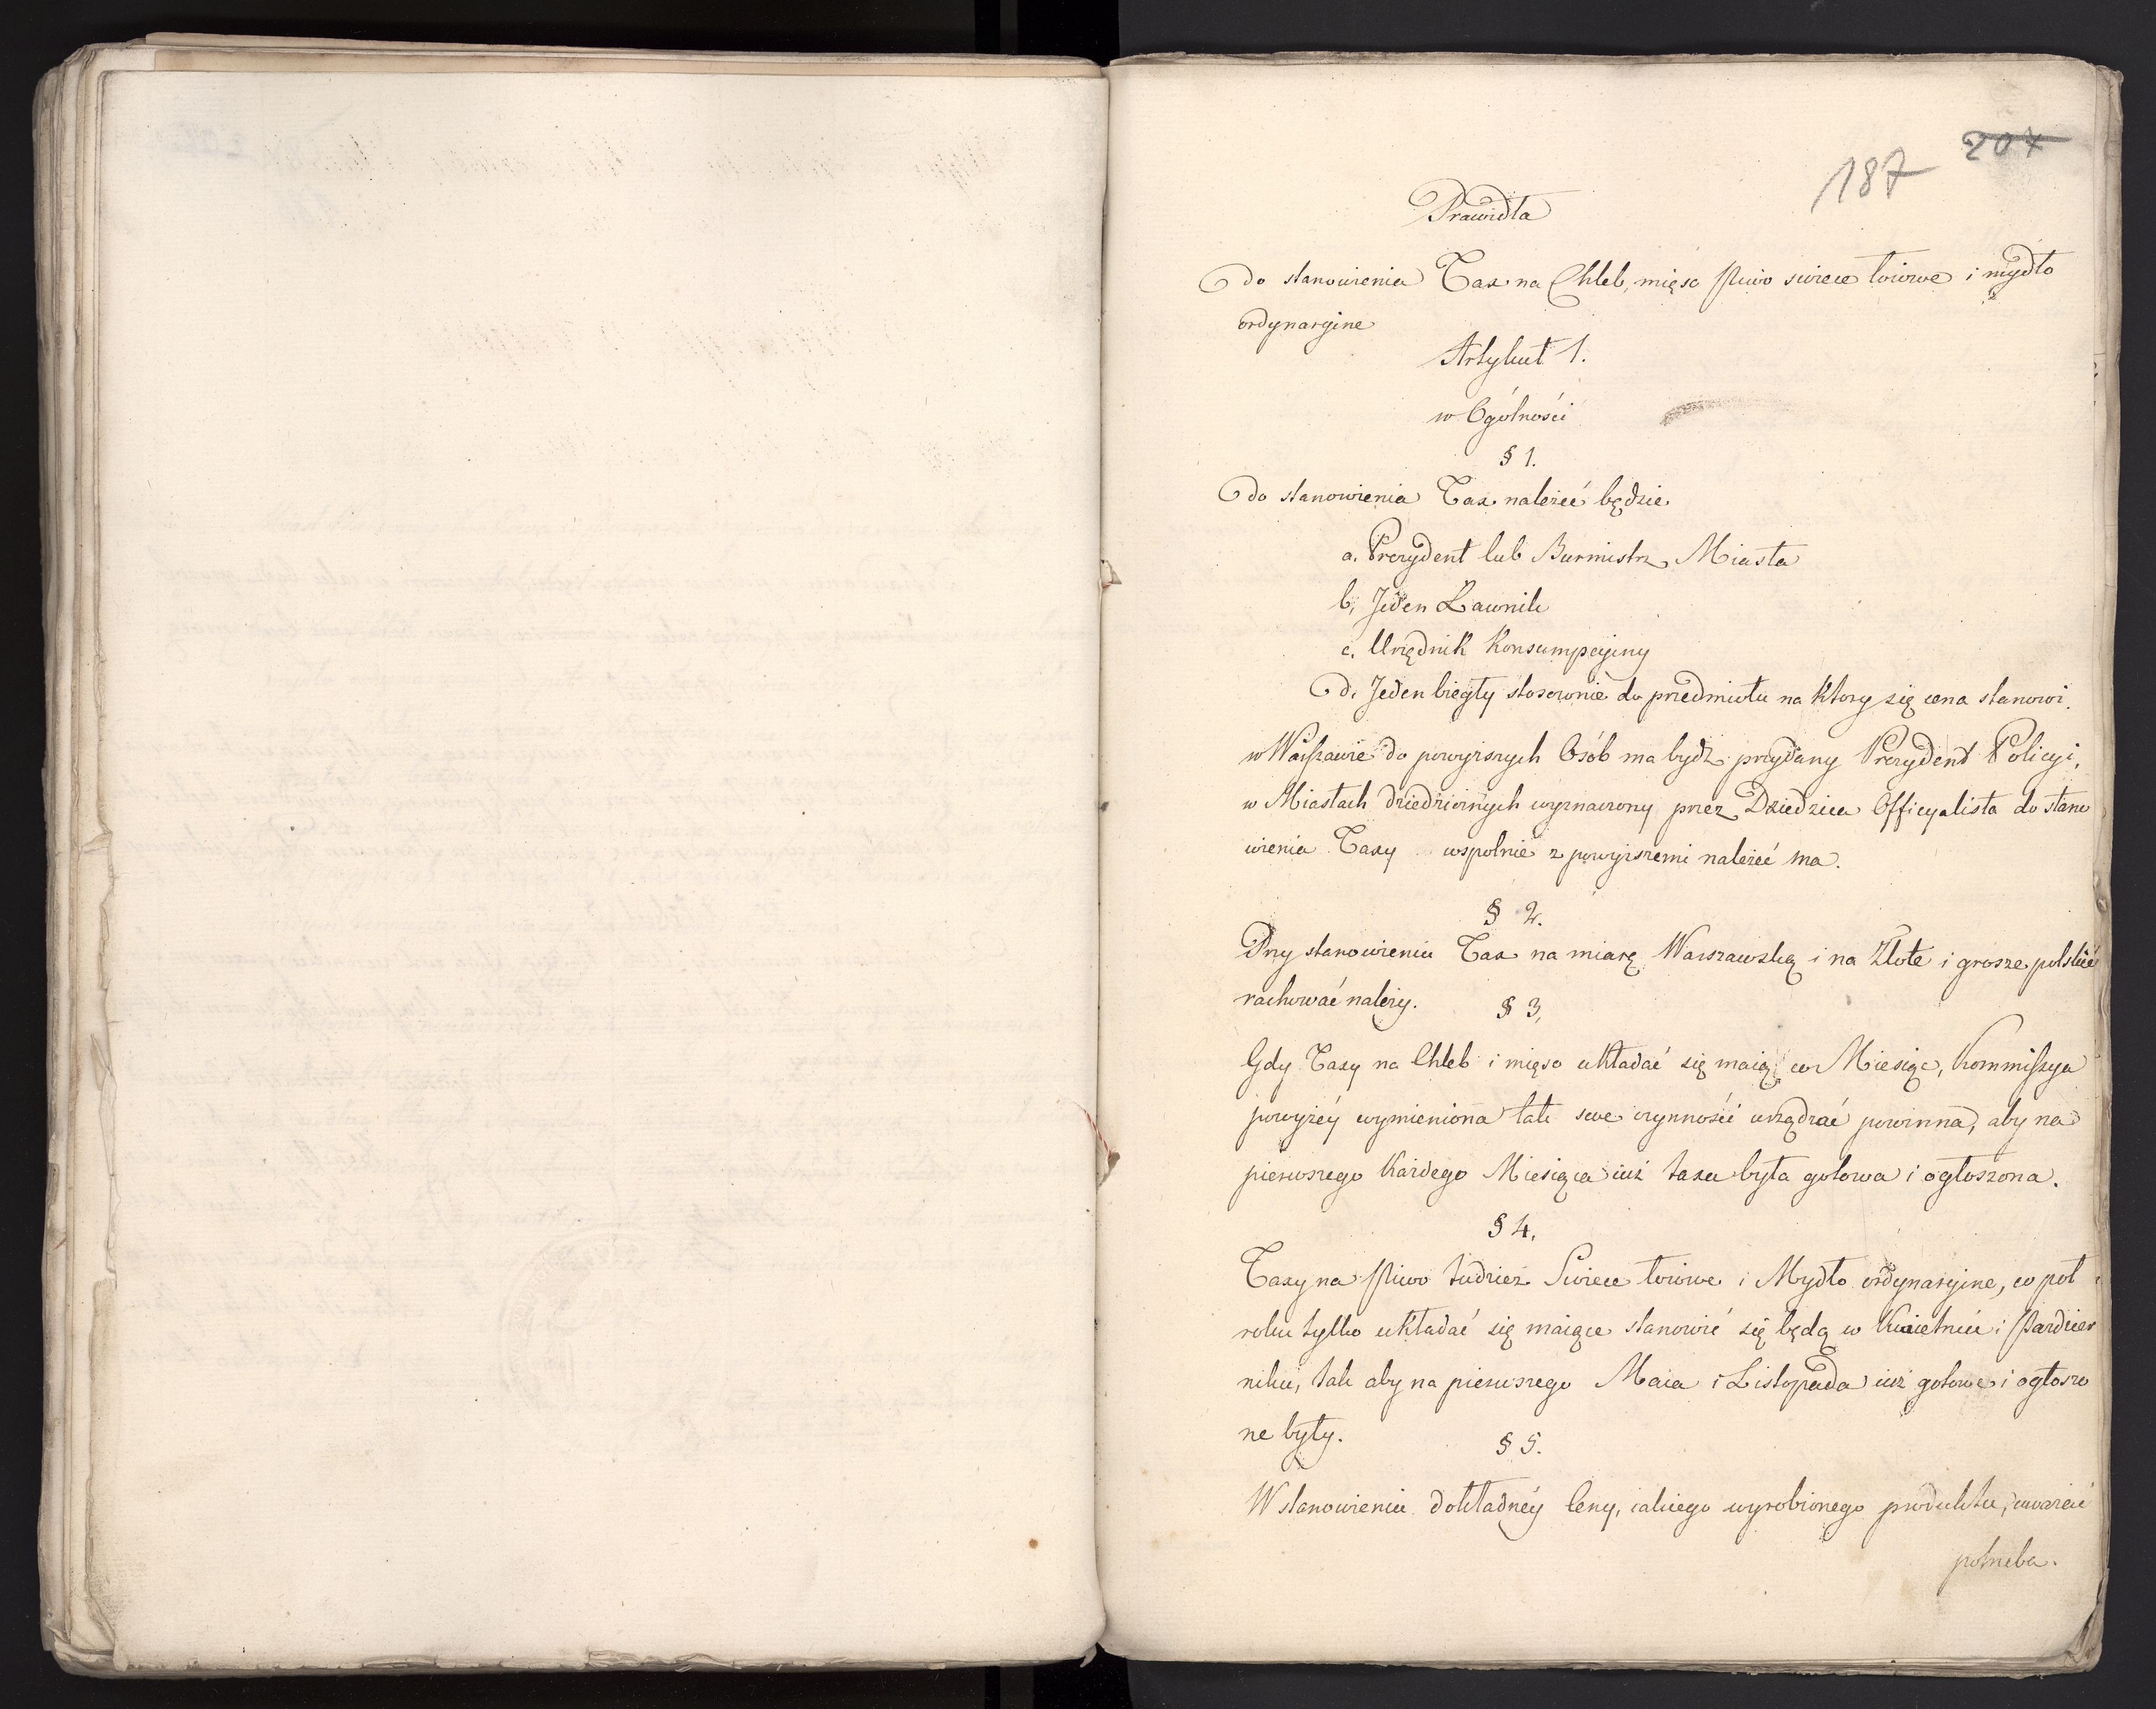 204
187
Prawidła
do stanowienia Tax na Chleb, mięso piwo swiece łoiowe i mydło
ordynaryine
Artykuł 1.
w Ogólności
§ 1.
do stanowienia Tax należeć będzie
a. Prezydent lub Burmistrz Miasta
b, Jeden Ławnik
c. Urzędnik Konsumpcyiny
d. Jeden biegły stosownie do przedmiotu na który się cena stanowi.
w Warszawie do powyższych Osób ma bydź przydany Prezydent Policyi,
w Miastach dziedzicznych wyznaczony przez Dziedzica Officyalista do stano
wienia Taxy wspolnie z powyższemi należeć ma.
§ 2.
Przy stanowieniu Tax na miarę Warszawską i na Złote i grosze polskie
rachować należy.
§ 3,
Gdy Taxy na Chleb i mięso układać się maią co Miesiąc, Kommissya
powyżéy wymieniona tak swe czynności urządzać powinna, aby na
pierwszego Każdego Miesiąca iuż taxa była gotowa i ogłoszona.
§ 4.
Taxy na piwo tudzież Swiece łoiowe i Mydło ordynaryine, co pół
roku tylko układać się maiące stanowić się będą w Kwietniu i Paździer
niku, tak aby na pierwszego Maia i Listopada iuż gotowe i ogłoszo
ne były.
§ 5.
W stanowieniu dokładnéy Ceny, iakiego wyrobionego produktu, uważać
potrzeba.